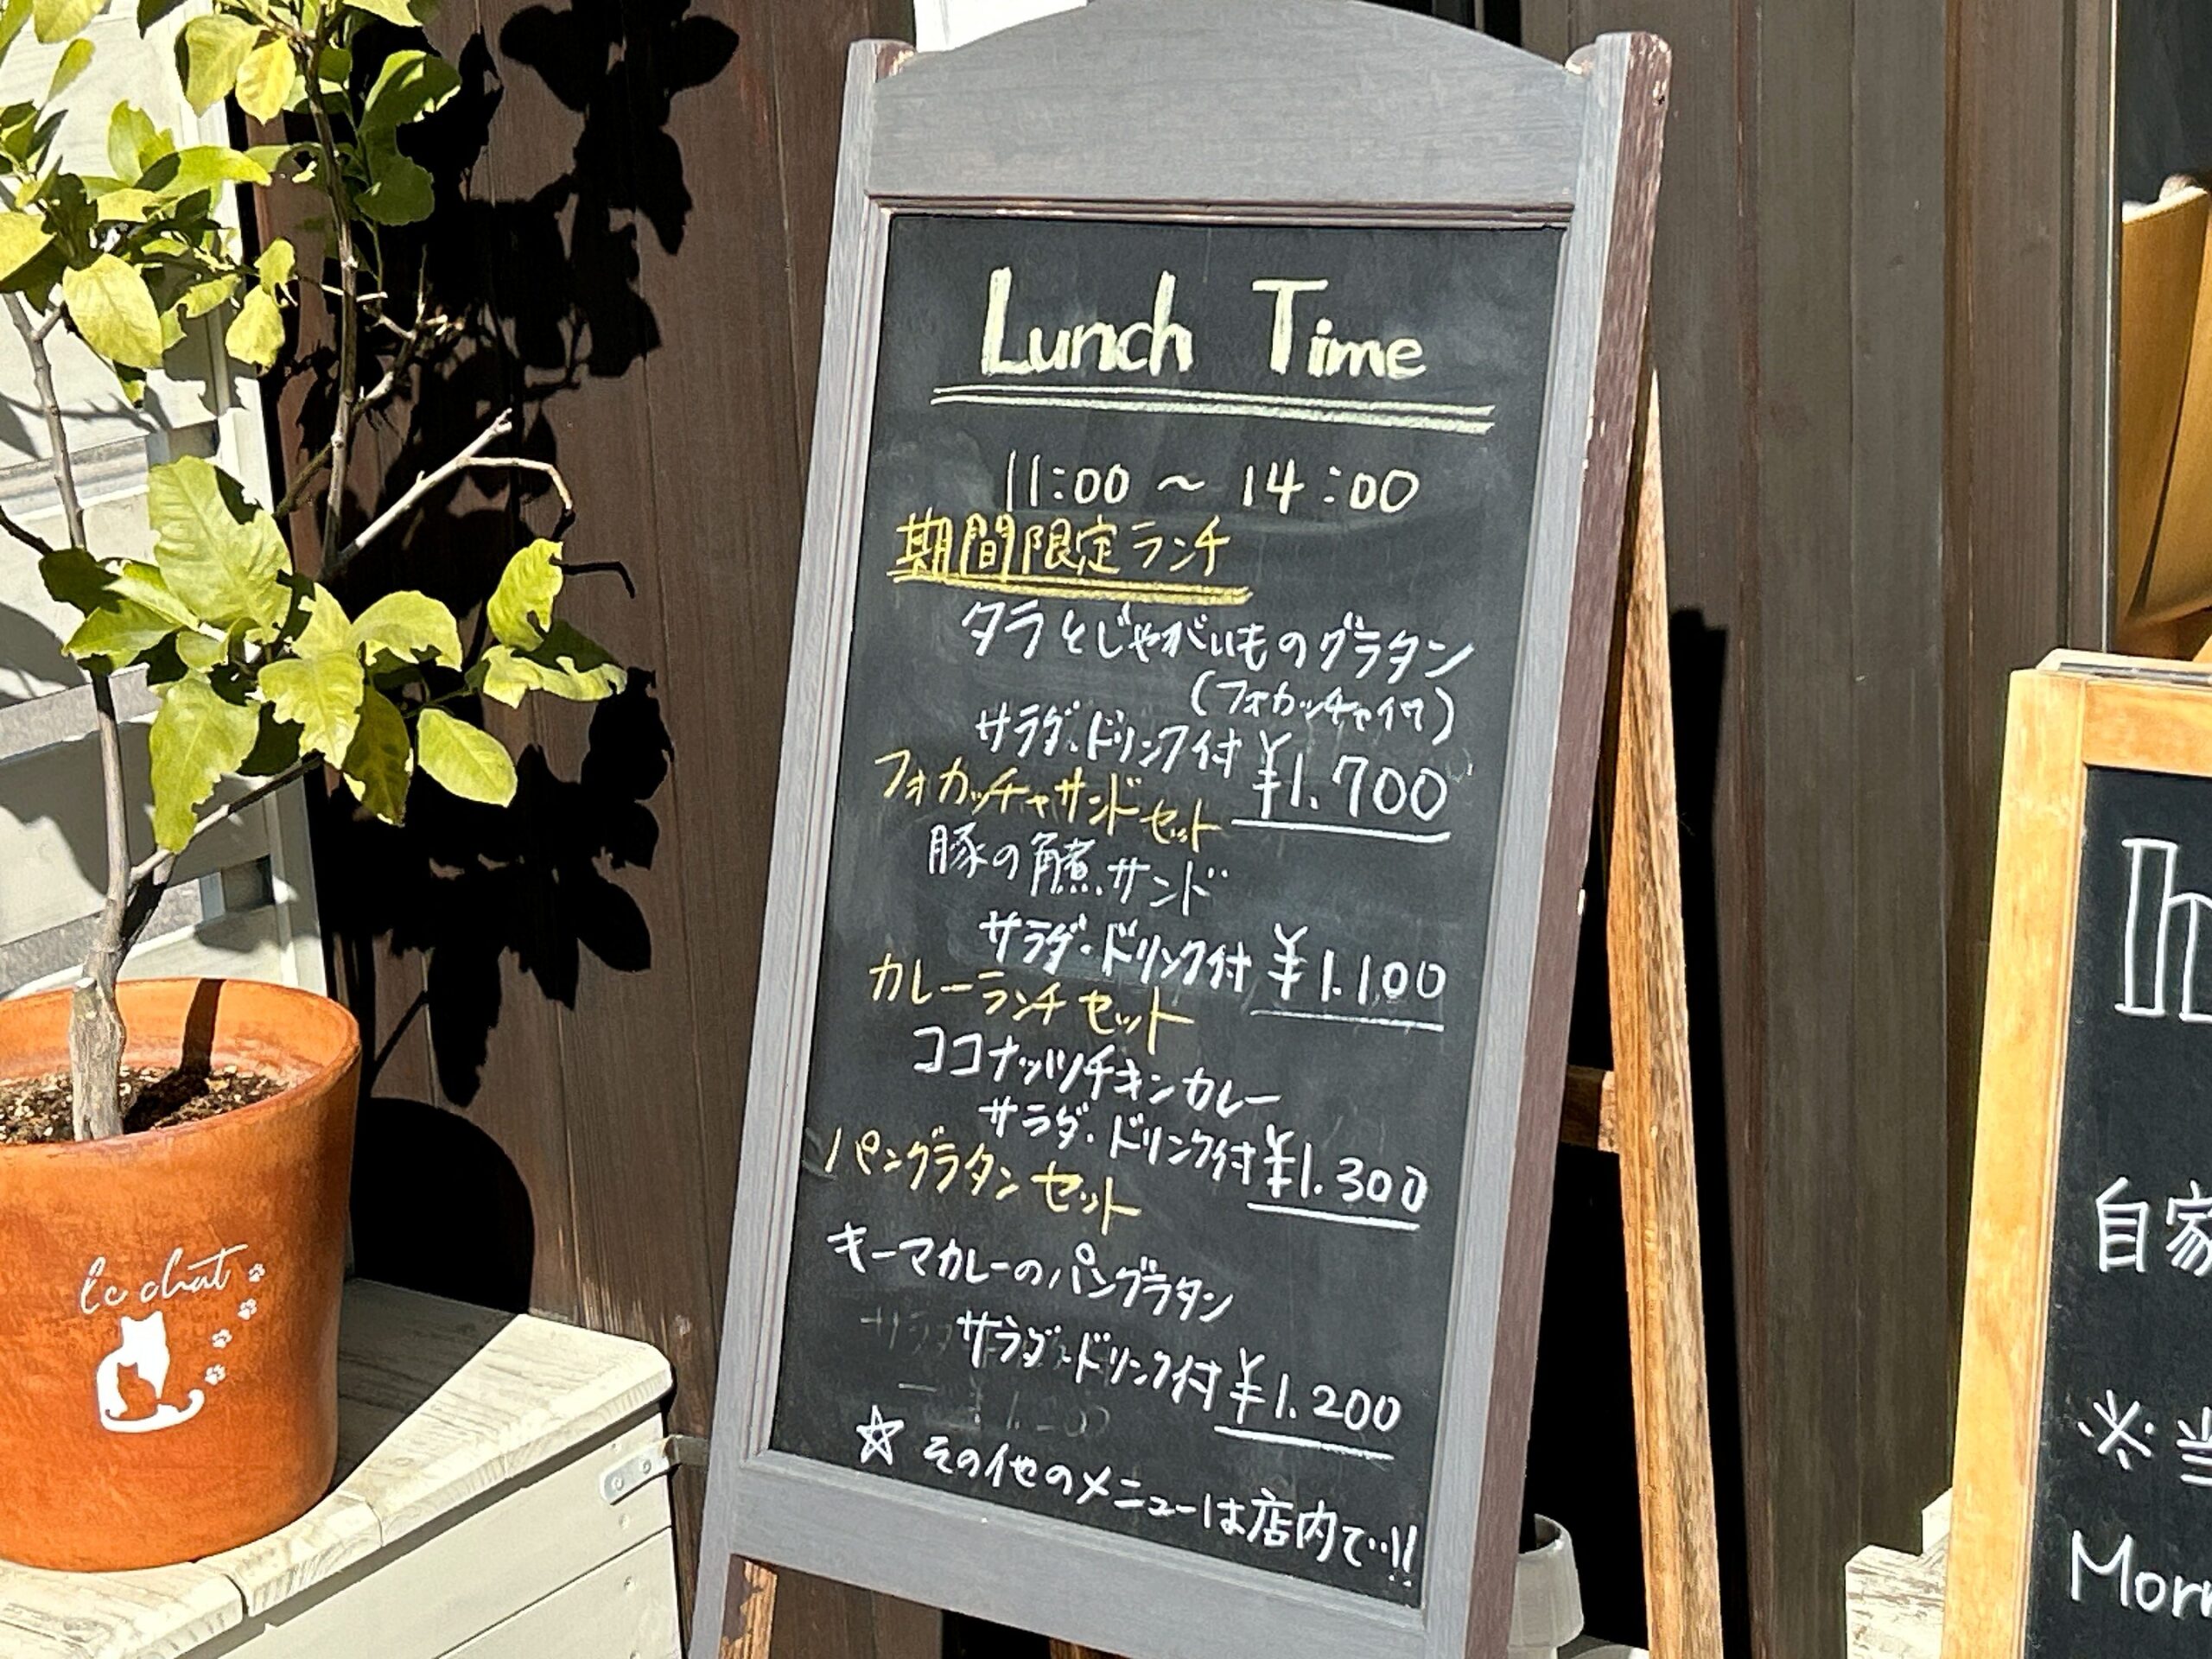 Lunch Time
11:00 ～ 14:00
期間限定ランチ
タラとじゃがいものグラタン
(フォカッチャイワ)
サラダ・ドリンク付 ¥1.700
フォカッチャサンドセット
豚の角煮サンド
サラダ・ドリンク付 ¥1.100
カレーランチセット
ココナッツチキンカレー
サラダ・ドリンク付 ¥1.300
パングラタンセット
キーマカレーのパングラタン
サラダ・ドリンク付 ¥1.200
☆ その他のメニューは店内で…!!
le chat
自家
※当
Morn